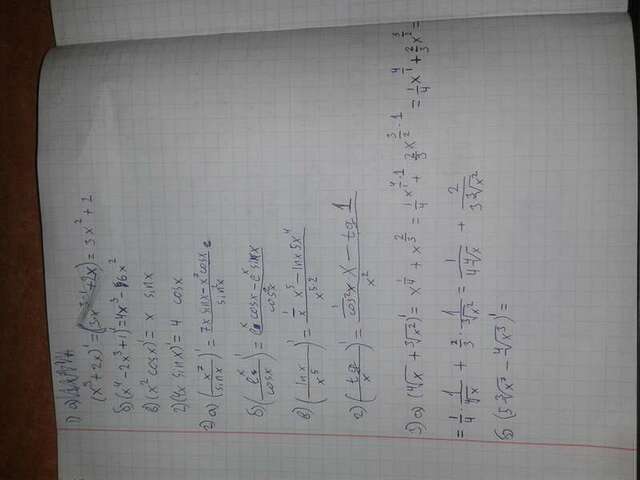 1) а)
(x³ + 2x)' = (3·x³⁻¹ + 2x) = 3x² + 2
б) (x⁴ - 2x³ + 1)' = 4x³ - 6x²
в) (x² cosx)' = x sinx
г) (4x sinx)' = 4 cosx
2) а) (x⁷/sinx)' = (7x sinx - x⁷cosx)/sin²x
б) (eˣ/cosx)' = (eˣ cosx - eˣ sinx)/cos²x
в) (lnx/x⁵)' = (1/x x⁵ - lnx 5x⁴)/x⁵·²
г) (tg/x)' = (1/cos²x x - tg 1)/x²
3) а) (⁴√x + ³√x²)' = x^(1/4) + x^(2/3) = 1/4 x^(4/1·1) + 2/3 x^(3/2·1) = 1/4 x^(4/1) + 2/3 x^(3/2) =
= 1/4 · 1/⁴√x + 2/3 · 1/³√x² = 1/(4 ⁴√x) + 2/(3 ³√x²)
б) (5 ³√x² - ⁴√x³)' =